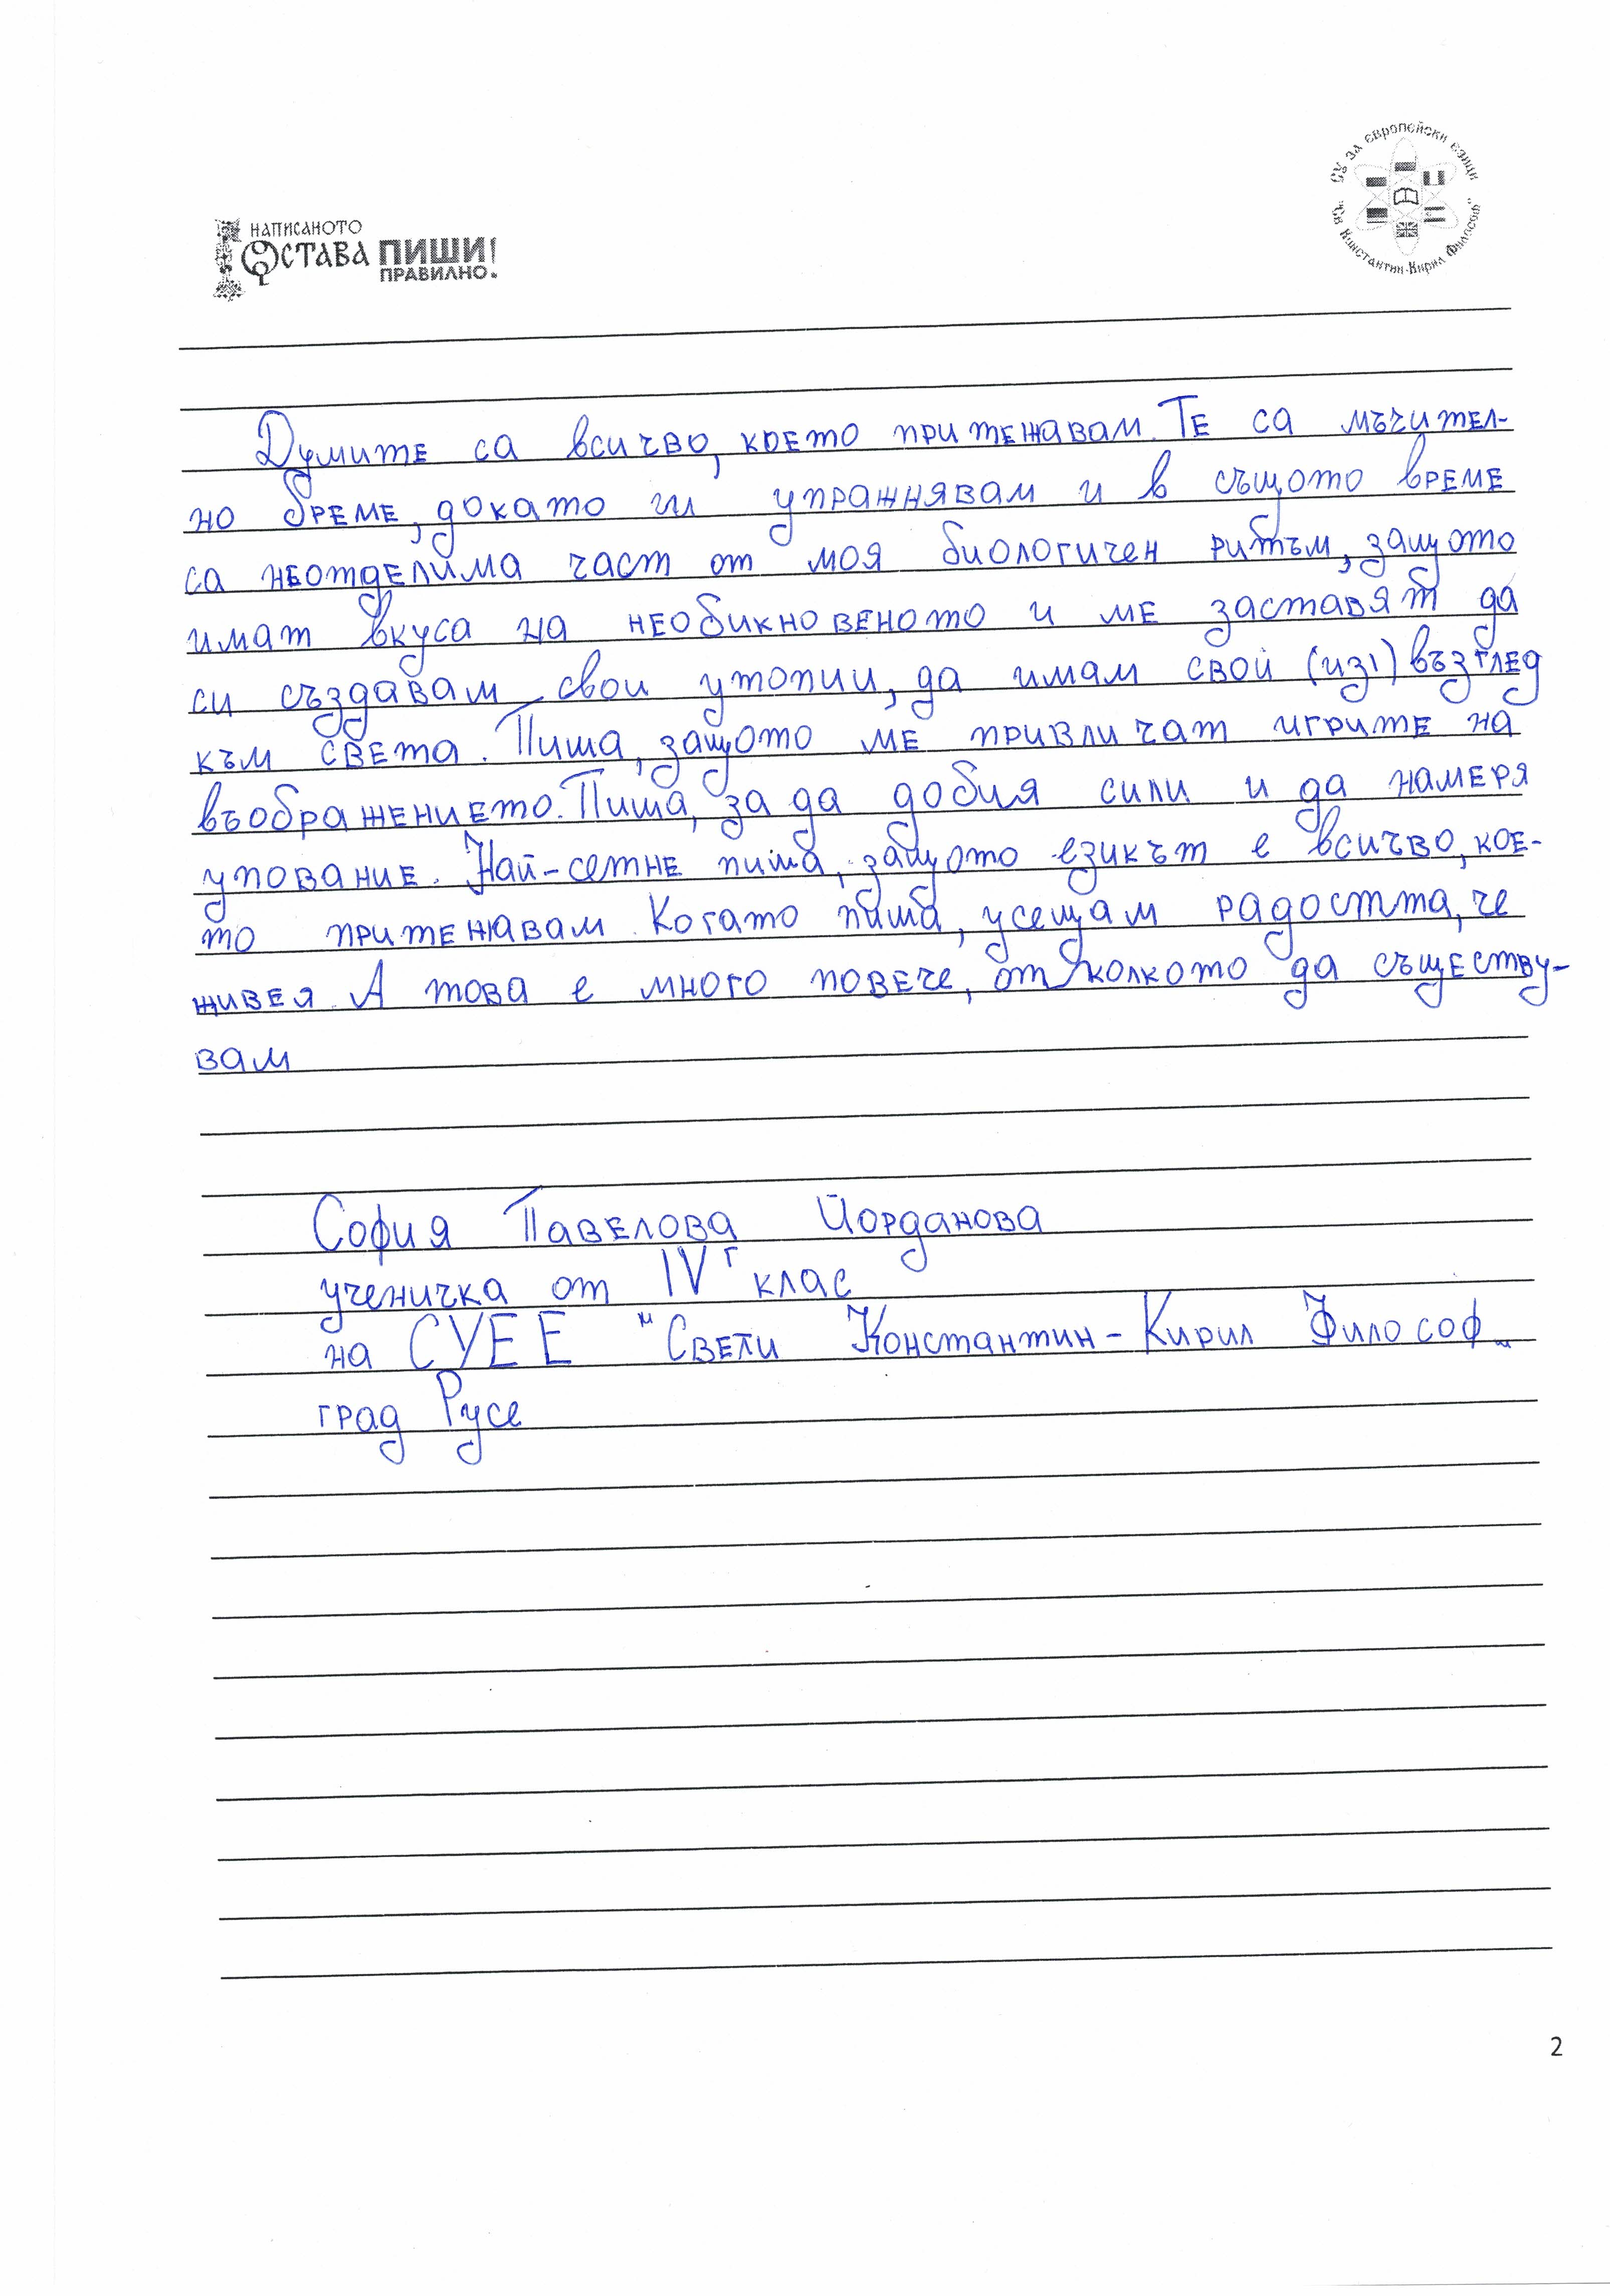 СУ за европейски езици
"Св. Константин-Кирил Философ"
НАПИСАНОТО
ОСТАВА ПИШИ!
ПРАВИЛНО.
Думите са всичво, което притежавам. Те са мъчител-
но бреме, докато ги упражнявам и в същото време
са неотделима част от моя биологичен ритъм, защото
имат вкуса на необикновеното и ме заставят да
си създавам свои утопии, да имам свой (из1) възглед
към света. Пиша, защото ме привличат игрите на
въображението. Пиша, за да добия сили и да намеря
упование. Най-сетне пиша, защото езикът е всичво, кое-
то притежавам. Когато пиша, усещам радостта, че
живея. А това е много повече, отколкото да съществу-
вам
София Павелова Йорданова
ученичка от IVг клас
на СУЕЕ "Свети Константин-Кирил Философ"
град Русе
2